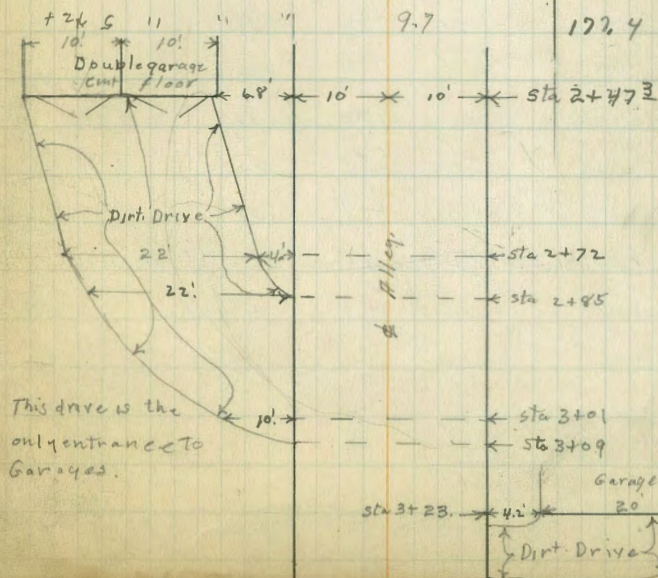 9.7 177.4
10' 10'
Double garage
cmt floor
6.8' 10' 10' sta 2+47³
Dirt. Drive
22' 4' sta 2+72
22' sta 2+85
℄ Alley.
This drive is the
only entrance to
Garages.
10' sta 3+01
sta 3+09
Garage
sta 3+23. 4.2' 20'
Dirt Drive